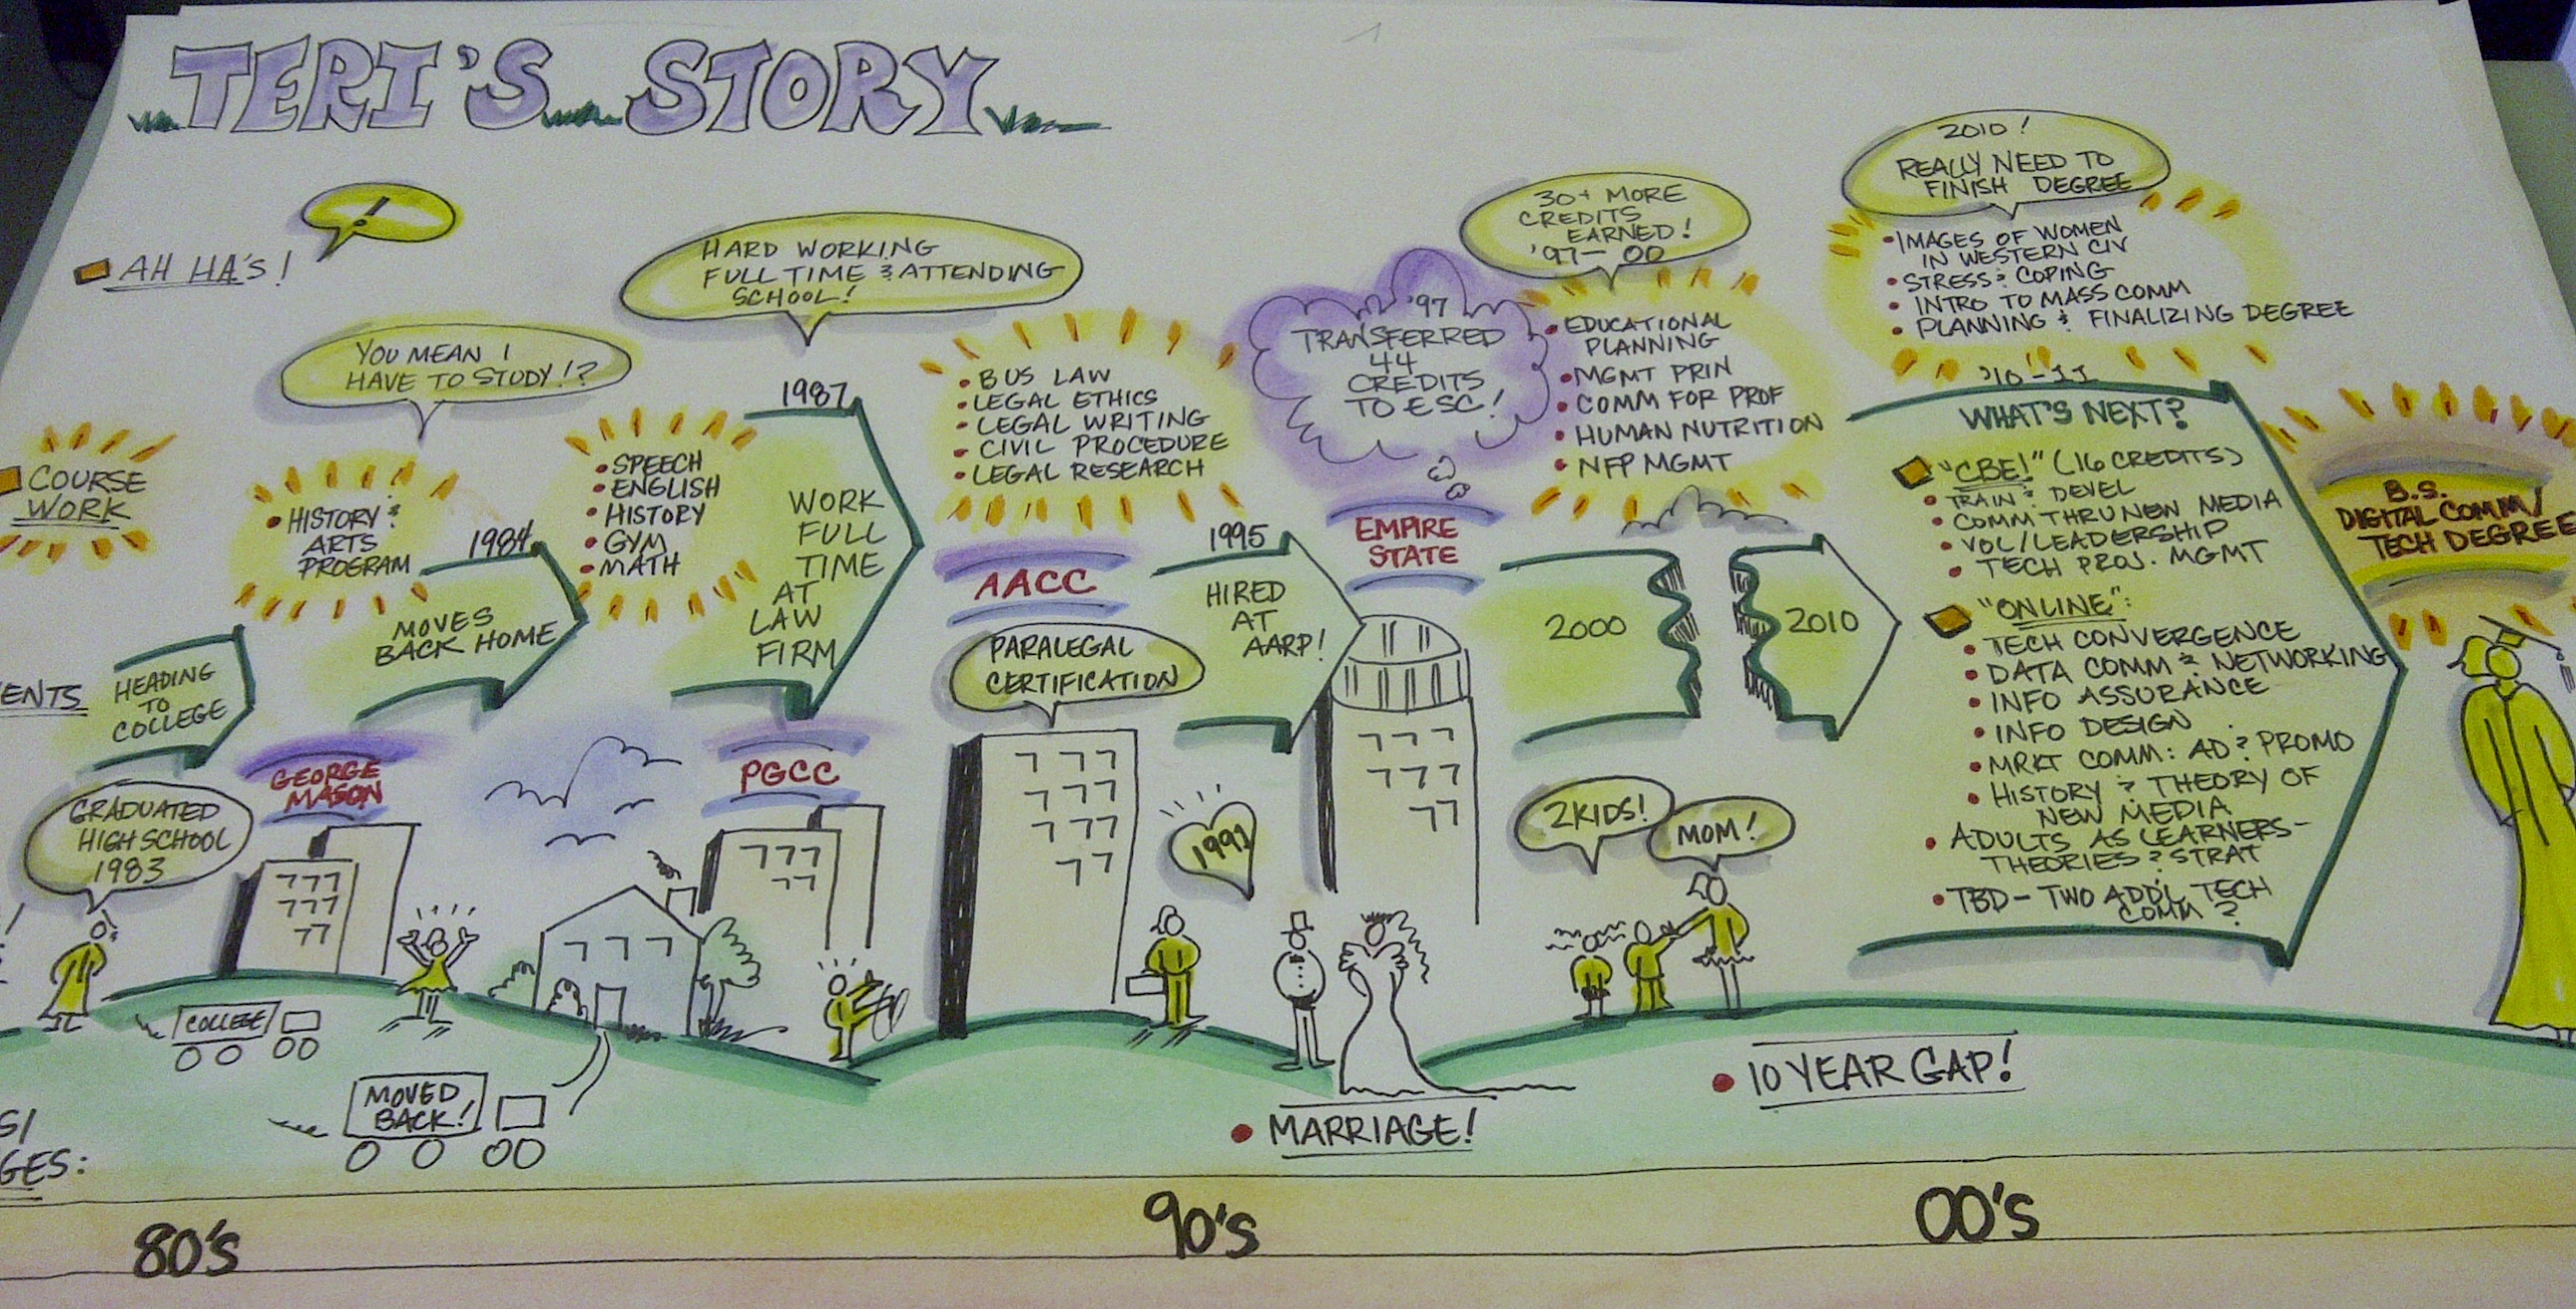 TERI'S STORY
AH HA'S!
!
COURSE
WORK
ENTS
S/
GES:
HEADING
TO
COLLEGE
GRADUATED
HIGH SCHOOL
1983
COLLEGE
YOU MEAN I
HAVE TO STUDY!?
• HISTORY &
ARTS
PROGRAM
1984
MOVES
BACK HOME
GEORGE
MASON
MOVED
BACK!
HARD WORKING
FULL TIME & ATTENDING
SCHOOL!
• SPEECH
• ENGLISH
• HISTORY
• GYM
• MATH
1987
WORK
FULL
TIME
AT
LAW
FIRM
PGCC
• BUS LAW
• LEGAL ETHICS
• LEGAL WRITING
• CIVIL PROCEDURE
• LEGAL RESEARCH
AACC
PARALEGAL
CERTIFICATION
1995
HIRED
AT
AARP!
1991
• MARRIAGE!
'97
TRANSFERRED
44
CREDITS
TO ESC!
EMPIRE
STATE
30+ MORE
CREDITS
EARNED!
'97-00
• EDUCATIONAL
PLANNING
• MGMT PRIN
• COMM FOR PROF
• HUMAN NUTRITION
• NFP MGMT
2000
2010
2 KIDS!
MOM!
• 10 YEAR GAP!
2010!
REALLY NEED TO
FINISH DEGREE
• IMAGES OF WOMEN
IN WESTERN CIV
• STRESS & COPING
• INTRO TO MASS COMM
• PLANNING & FINALIZING DEGREE
'10-11
WHAT'S NEXT?
"CBE!" (16 CREDITS)
• TRAIN & DEVEL
• COMM THRU NEW MEDIA
• VOL/LEADERSHIP
• TECH PROJ. MGMT
"ONLINE":
• TECH CONVERGENCE
• DATA COMM & NETWORKING
• INFO ASSURANCE
• INFO DESIGN
• MRKT COMM: AD & PROMO
• HISTORY & THEORY OF
NEW MEDIA
• ADULTS AS LEARNERS-
THEORIES & STRAT
• TBD- TWO ADD'L TECH
COMM?
B.S.
DIGITAL COMM/
TECH DEGREE
80's
90's
00's